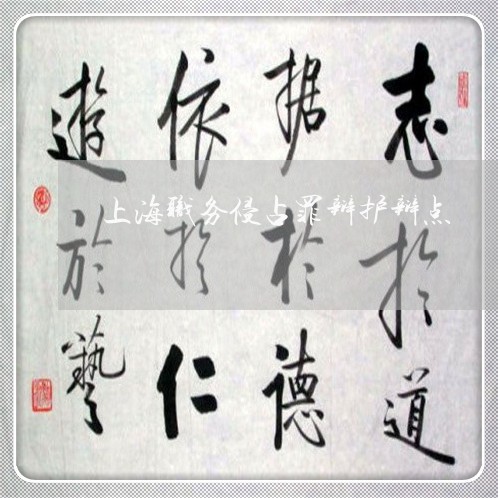 志於道
据於德
依於仁
遊於藝
上海职务侵占罪辩护辩点